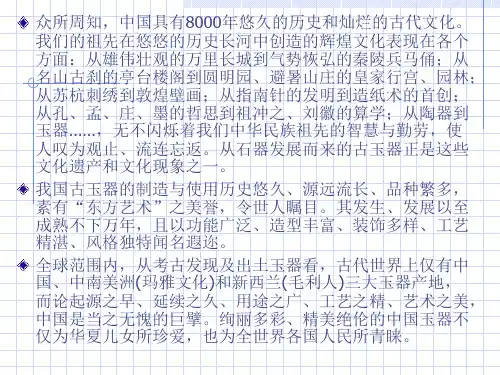 众所周知，中国具有8000年悠久的历史和灿烂的古代文化。
我们的祖先在悠悠的历史长河中创造的辉煌文化表现在各个
方面：从雄伟壮观的万里长城到气势恢弘的秦陵兵马俑；从
名山古刹的亭台楼阁到圆明园、避暑山庄的皇家行宫、园林；
从苏杭刺绣到敦煌壁画；从指南针的发明到造纸术的首创；
从孔、孟、庄、墨的哲思到祖冲之、刘徽的算学；从陶器到
玉器……，无不闪烁着我们中华民族祖先的智慧与勤劳，使
人叹为观止、流连忘返。从石器发展而来的古玉器正是这些
文化遗产和文化现象之一。
我国古玉器的制造与使用历史悠久、源远流长、品种繁多，
素有“东方艺术”之美誉，令世人瞩目。其发生、发展以至
成熟不下万年，且以功能广泛、造型丰富、装饰多样、工艺
精湛、风格独特闻名遐迩。
全球范围内，从考古发现及出土玉器看，古代世界上仅有中
国、中南美洲(玛雅文化)和新西兰(毛利人)三大玉器产地，
而论起源之早、延续之久、用途之广、工艺之精、艺术之美，
中国是当之无愧的巨擘。绚丽多彩、精美绝伦的中国玉器不
仅为华夏儿女所珍爱，也为全世界各国人民所青睐。